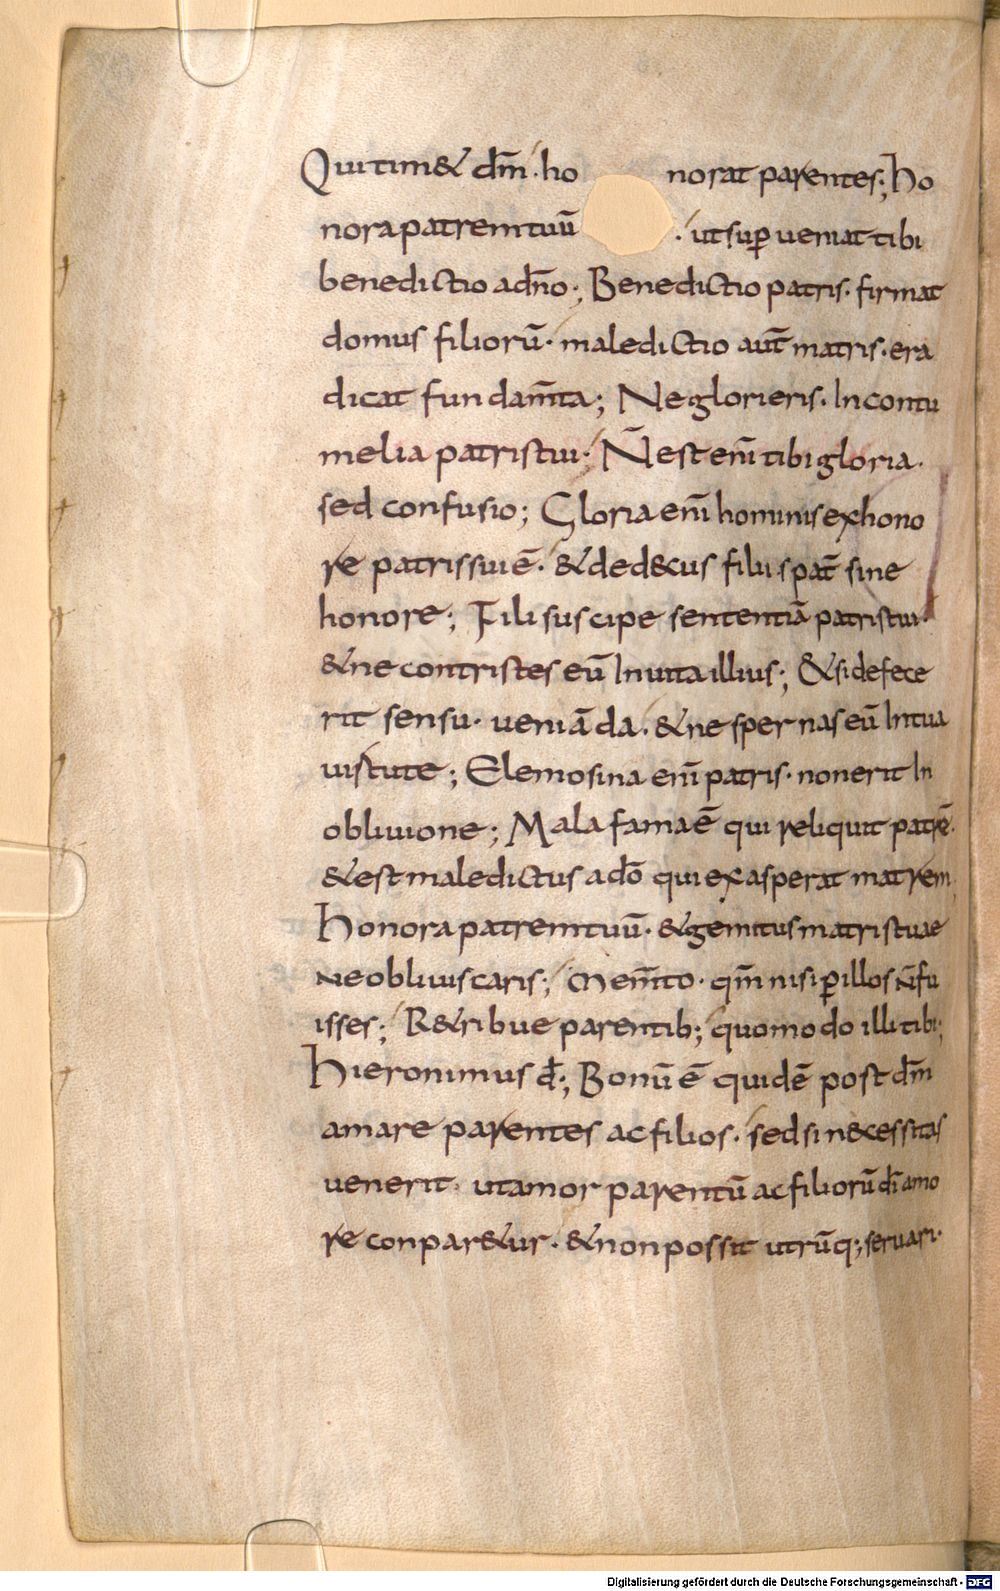 Quitim& dm̄. ho norat parentes; ho
nora patrem tuū. ut sup̱ ueniat tibi
benedictio adn̄o; Benedictio patris. firmat
domus filiorū. maledictio aut̄ matris. era
dicat fundam̄ta; Ne glorieris. In contu
melia patris tui; N̄ est enī tibi gloria.
sed confusio; Gloria enī hominis ex hono
re patris sui ē. & ded&cus filii s pat̄ sine
honore; Fili suscipe sententiā patris tui.
& ne contristes eū In uita illius; & si defece
rit sensu. ueniā da. & ne spernas eū In tua
uirtute; Elemosina enī patris. non erit In
obliuione; Mala fama ē qui reliquit patrē.
& est maledictus ad̄o qui exasperat matrem;
Honora patrem tuū. & gemitus matris tuae
ne obliuiscaris; Mem̄to. qm̄ nisi p̱ illos n̄ fu
isses; R&ribue parentib; quomodo illi tibi;
Hieronimus đ; Bonū ē quidē post dm̄
amare parentes ac filios. sed si n&cessitas
uenerit. ut amor parentū ac filiorū dī amo
re conpar&ur. & non possit utrūq; seruari.
Digitalisierung gefördert durch die Deutsche Forschungsgemeinschaft - DFG